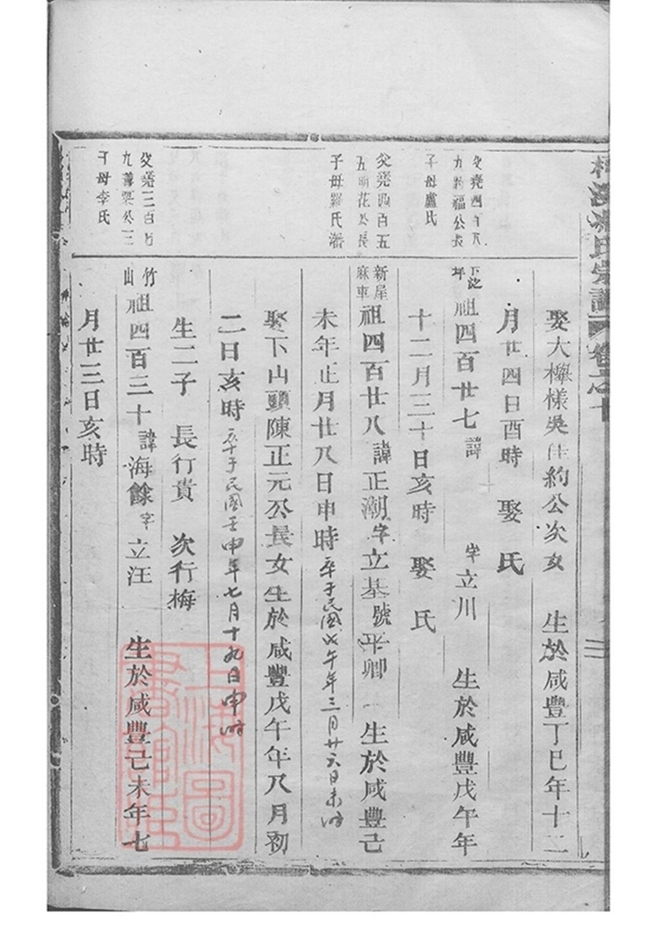 氏宗譜 卷之十
娶大樟樣吳 約公次女 生於咸豐丁巳年十二
月廿四日酉時 娶 氏
父堯四百
九 福公長
子母盧氏
祖四百廿七 諱 字立川 生於咸豐戊午年
十二月三十日亥時 娶 氏
父堯四百五
五 花公長
子母 氏
新屋
麻車
祖四百廿八 諱正潮 字立基 號平卿 生於咸豐己
未年正月廿八日申時 卒于民國戊午年三月廿六日未時
娶下山頭陳正元公長女生於咸豐戊午年八月初
二日亥時 卒于民國壬申年七月十九日申時
生二子 長行貴 次行梅
父堯三百
九 公三
子母李氏
竹
山
祖四百三十 諱海餘 字立汪 生於咸豐己未年七
月廿三日亥時